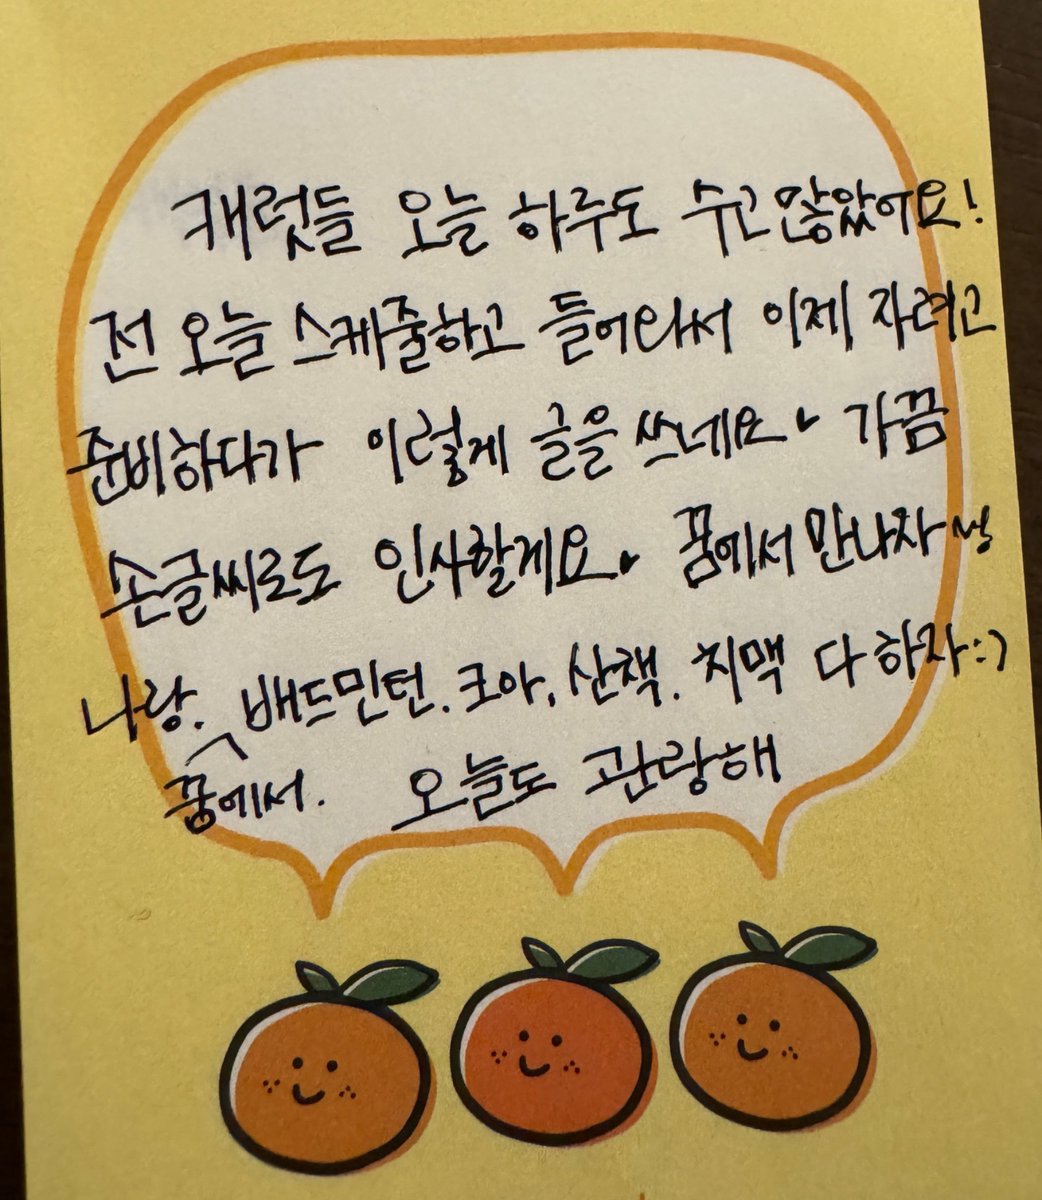 캐럿들 오늘 하루도 수고 많았어요!
전 오늘 스케줄하고 들어와서 이제 자려고
준비하다가 이렇게 글을 쓰네요 가끔
손글씨로도 인사할게요 꿈에서 만나자
나랑. 배드민턴. 코아, 산책. 치맥 다 하자:)
꿈에서. 오늘도 관랑해